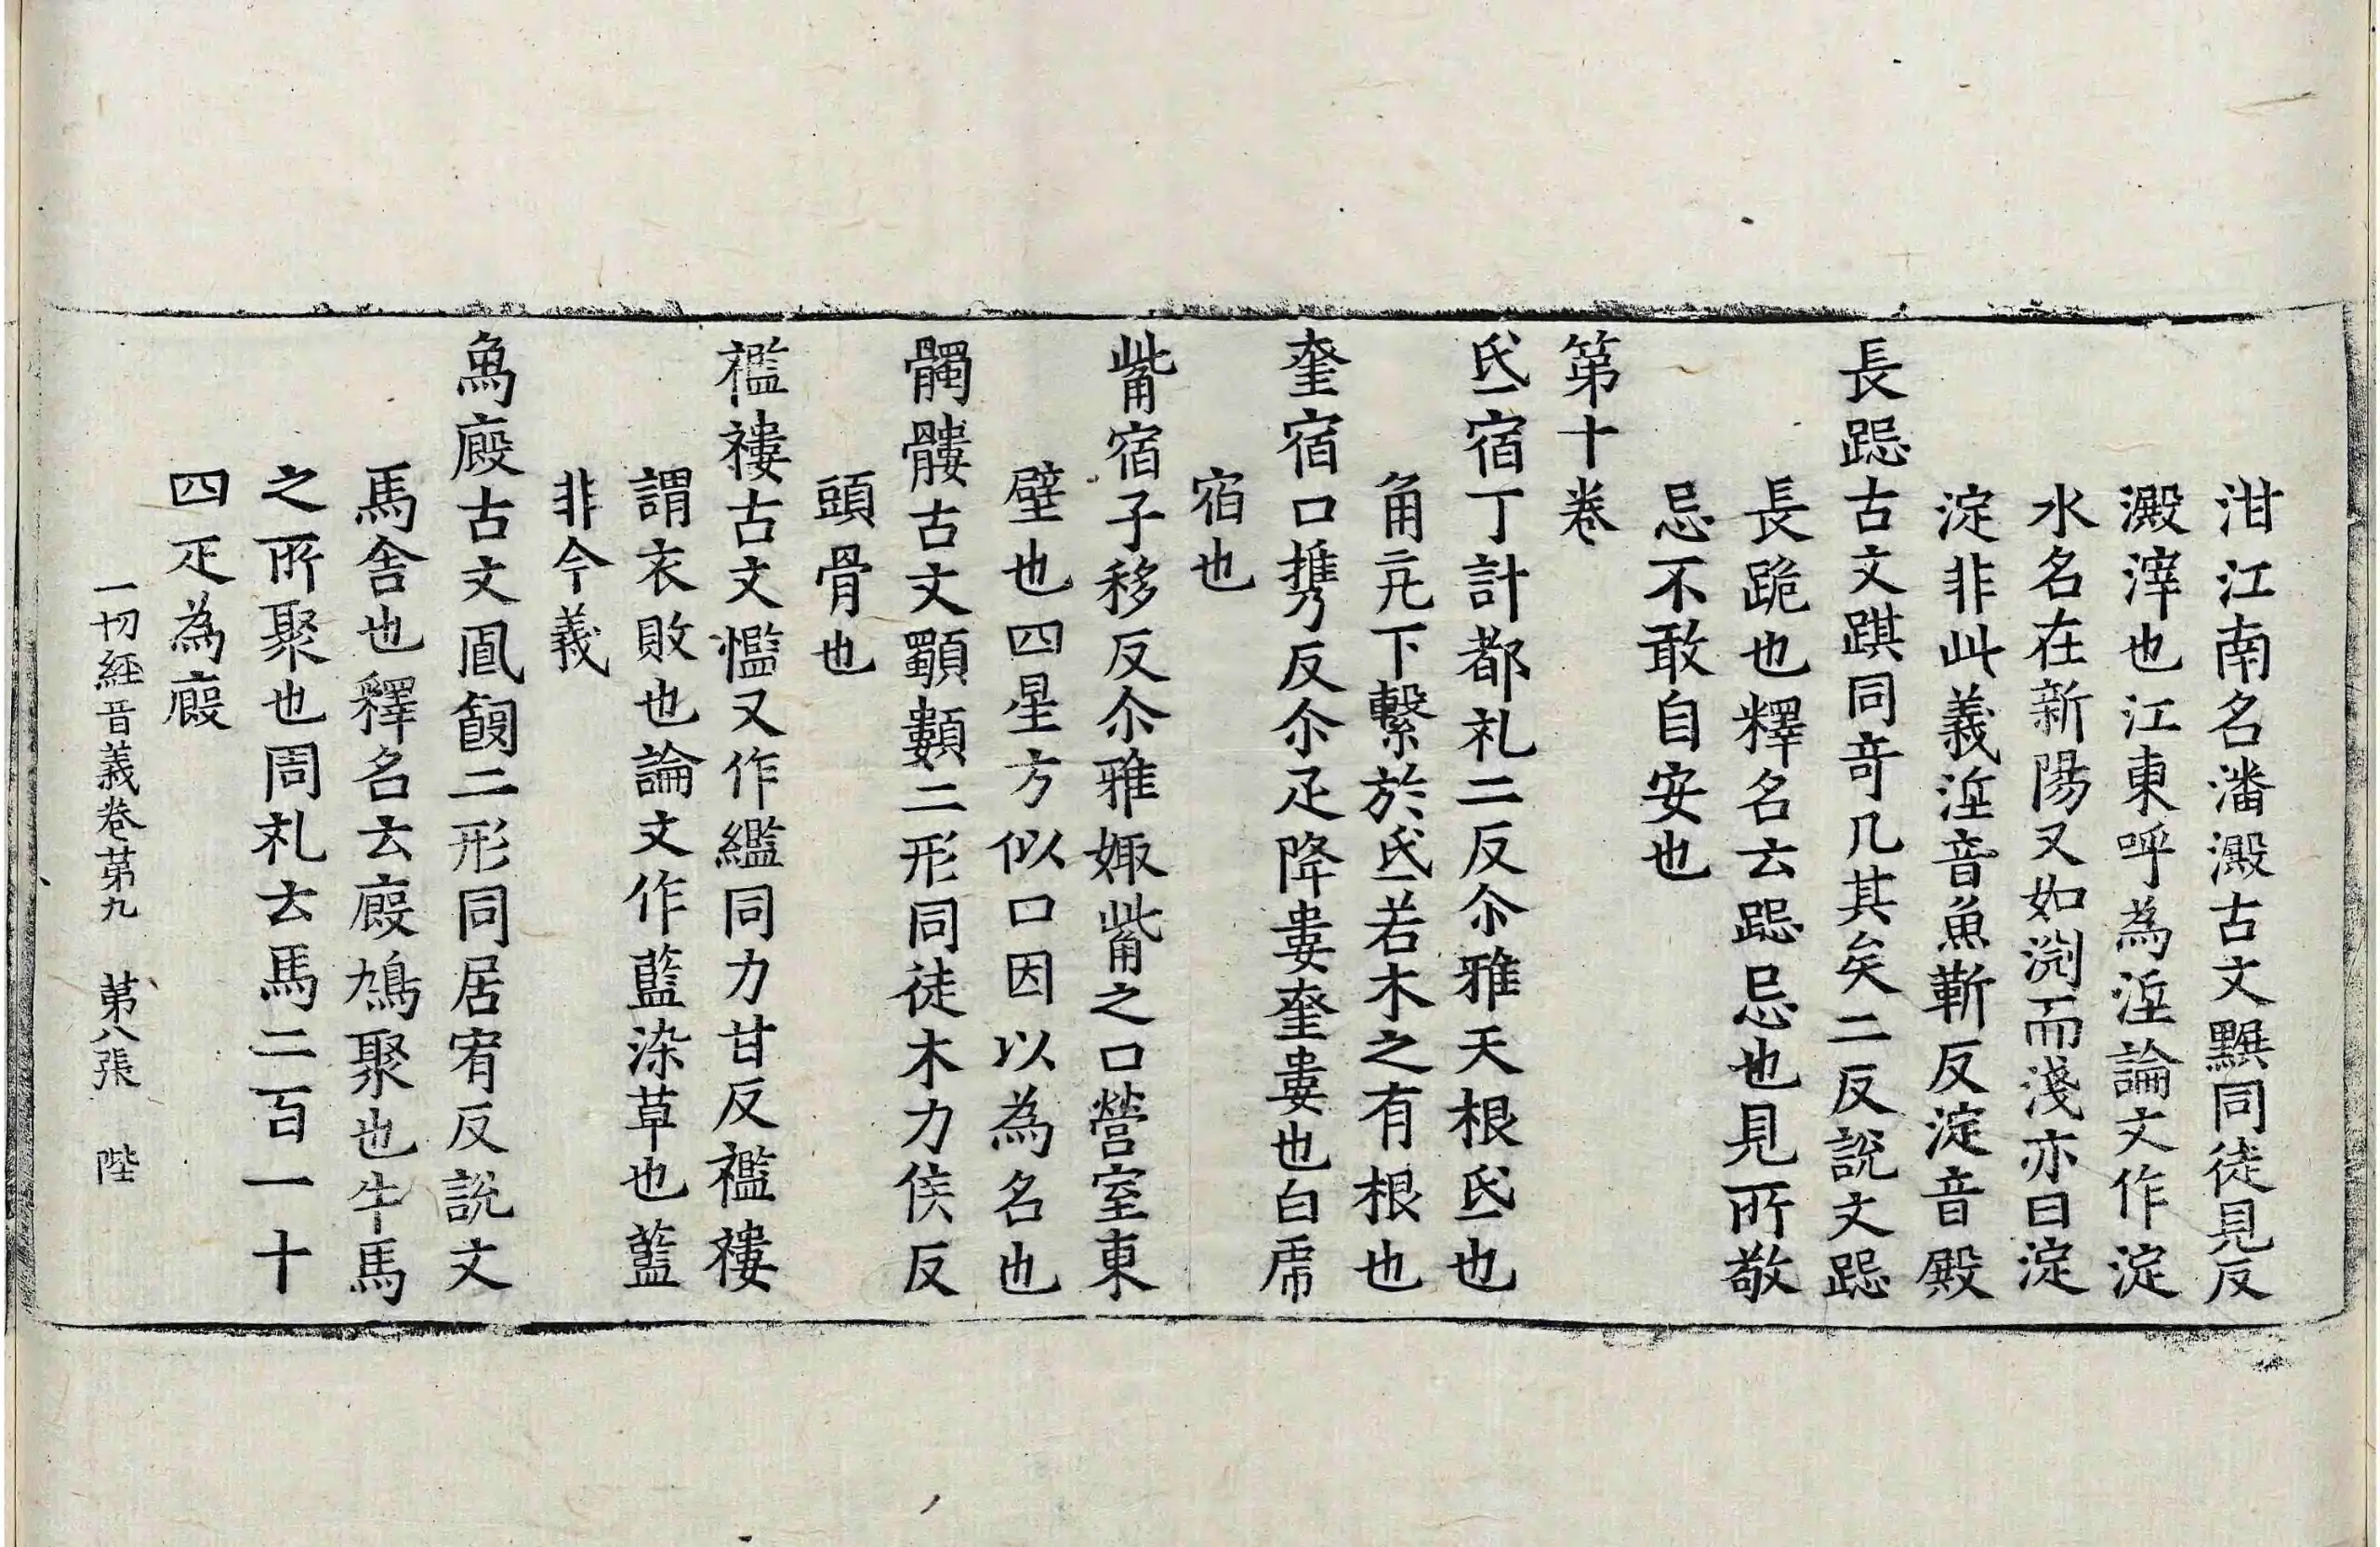 泔江南名潘澱古文䵘同徒見反
澱滓也江東呼為洷論文作淀
水名在新陽又如渕而淺亦曰淀
淀非此義洷音魚靳反淀音殿
長跽古文䠏同竒几其矣二反說文跽
長跪也釋名云跽忌也見所敬
忌不敢自安也
第十卷
氐宿丁計都礼二反尒雅天根氐也
角亢下繫於氐若木之有根也
奎宿口攜反尒疋降婁奎婁也白虎
宿也
觜宿子移反尒雅娵觜之口營室東
壁也四星方似口因以為名也
髑髏古文顝䫫二形同徒木力侯反
頭骨也
襤褸古文㜮又作繿同力甘反襤褸
謂衣敗也論文作藍染草也藍
非今義
馬廄古文㔲飽二形同居宥反說文
馬舍也釋名云廄鳩聚也牛馬
之所聚也周礼云馬二百一十
四疋為廄
一切経音義卷第九　第八張　陛